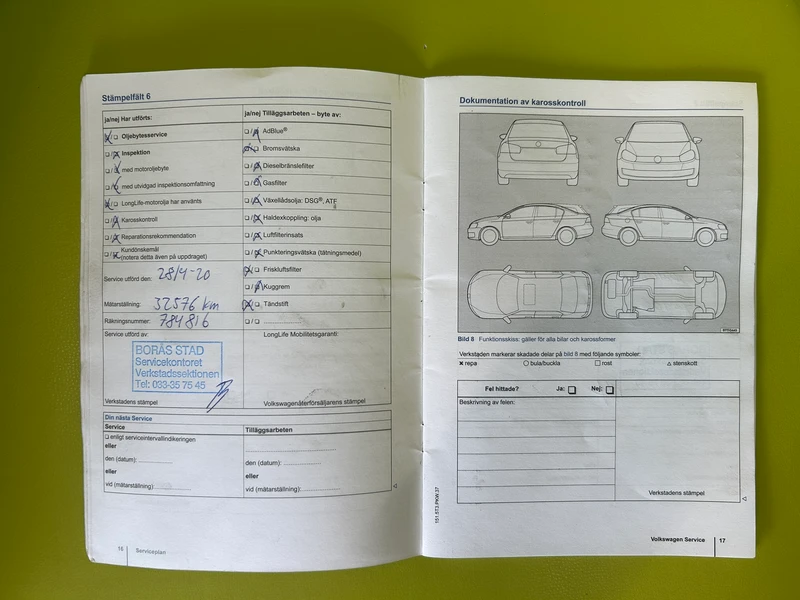 Stämpelfält 6
ja/nej Har utförts:
Oljebytesservice
Inspektion
med motoroljebyte
med utvidgad inspektionsomfattning
LongLife-motorolja har använts
Karosskontroll
Reparationsrekommendation
Kundönskemål
(notera detta även på uppdraget)
Service utförd den: 28/4-20
Mätarställning: 32576 km
Räkningsnummer: 784816
Service utförd av:
BORÅS STAD
Servicekontoret
Verkstadssektionen
Tel: 033-35 75 45
Verkstadens stämpel
ja/nej Tilläggsarbeten – byte av:
AdBlue®
Bromsvätska
Dieselbränslefilter
Gasfilter
Växellådsolja: DSG®, ATF
Haldexkoppling: olja
Luftfilterinsats
Punkteringsvätska (tätningsmedel)
Friskluftsfilter
Kuggrem
Tändstift
LongLife Mobilitetsgaranti:
Volkswagenåterförsäljarens stämpel
Din nästa Service
Service
enligt serviceintervallindikeringen
eller
den (datum):
eller
vid (mätarställning)
Tilläggsarbeten
den (datum):
eller
vid (mätarställning):
16 Serviceplan
Dokumentation av karosskontroll
Bild 8 Funktionsskiss: gäller för alla bilar och karossformer
Verkstaden markerar skadade delar på bild 8 med följande symboler:
✖ repa ○ bula/buckla □ rost △ stenskott
Fel hittade? Ja: Nej:
Beskrivning av felen:
Verkstadens stämpel
151.5T3.PKW.37
Volkswagen Service 17